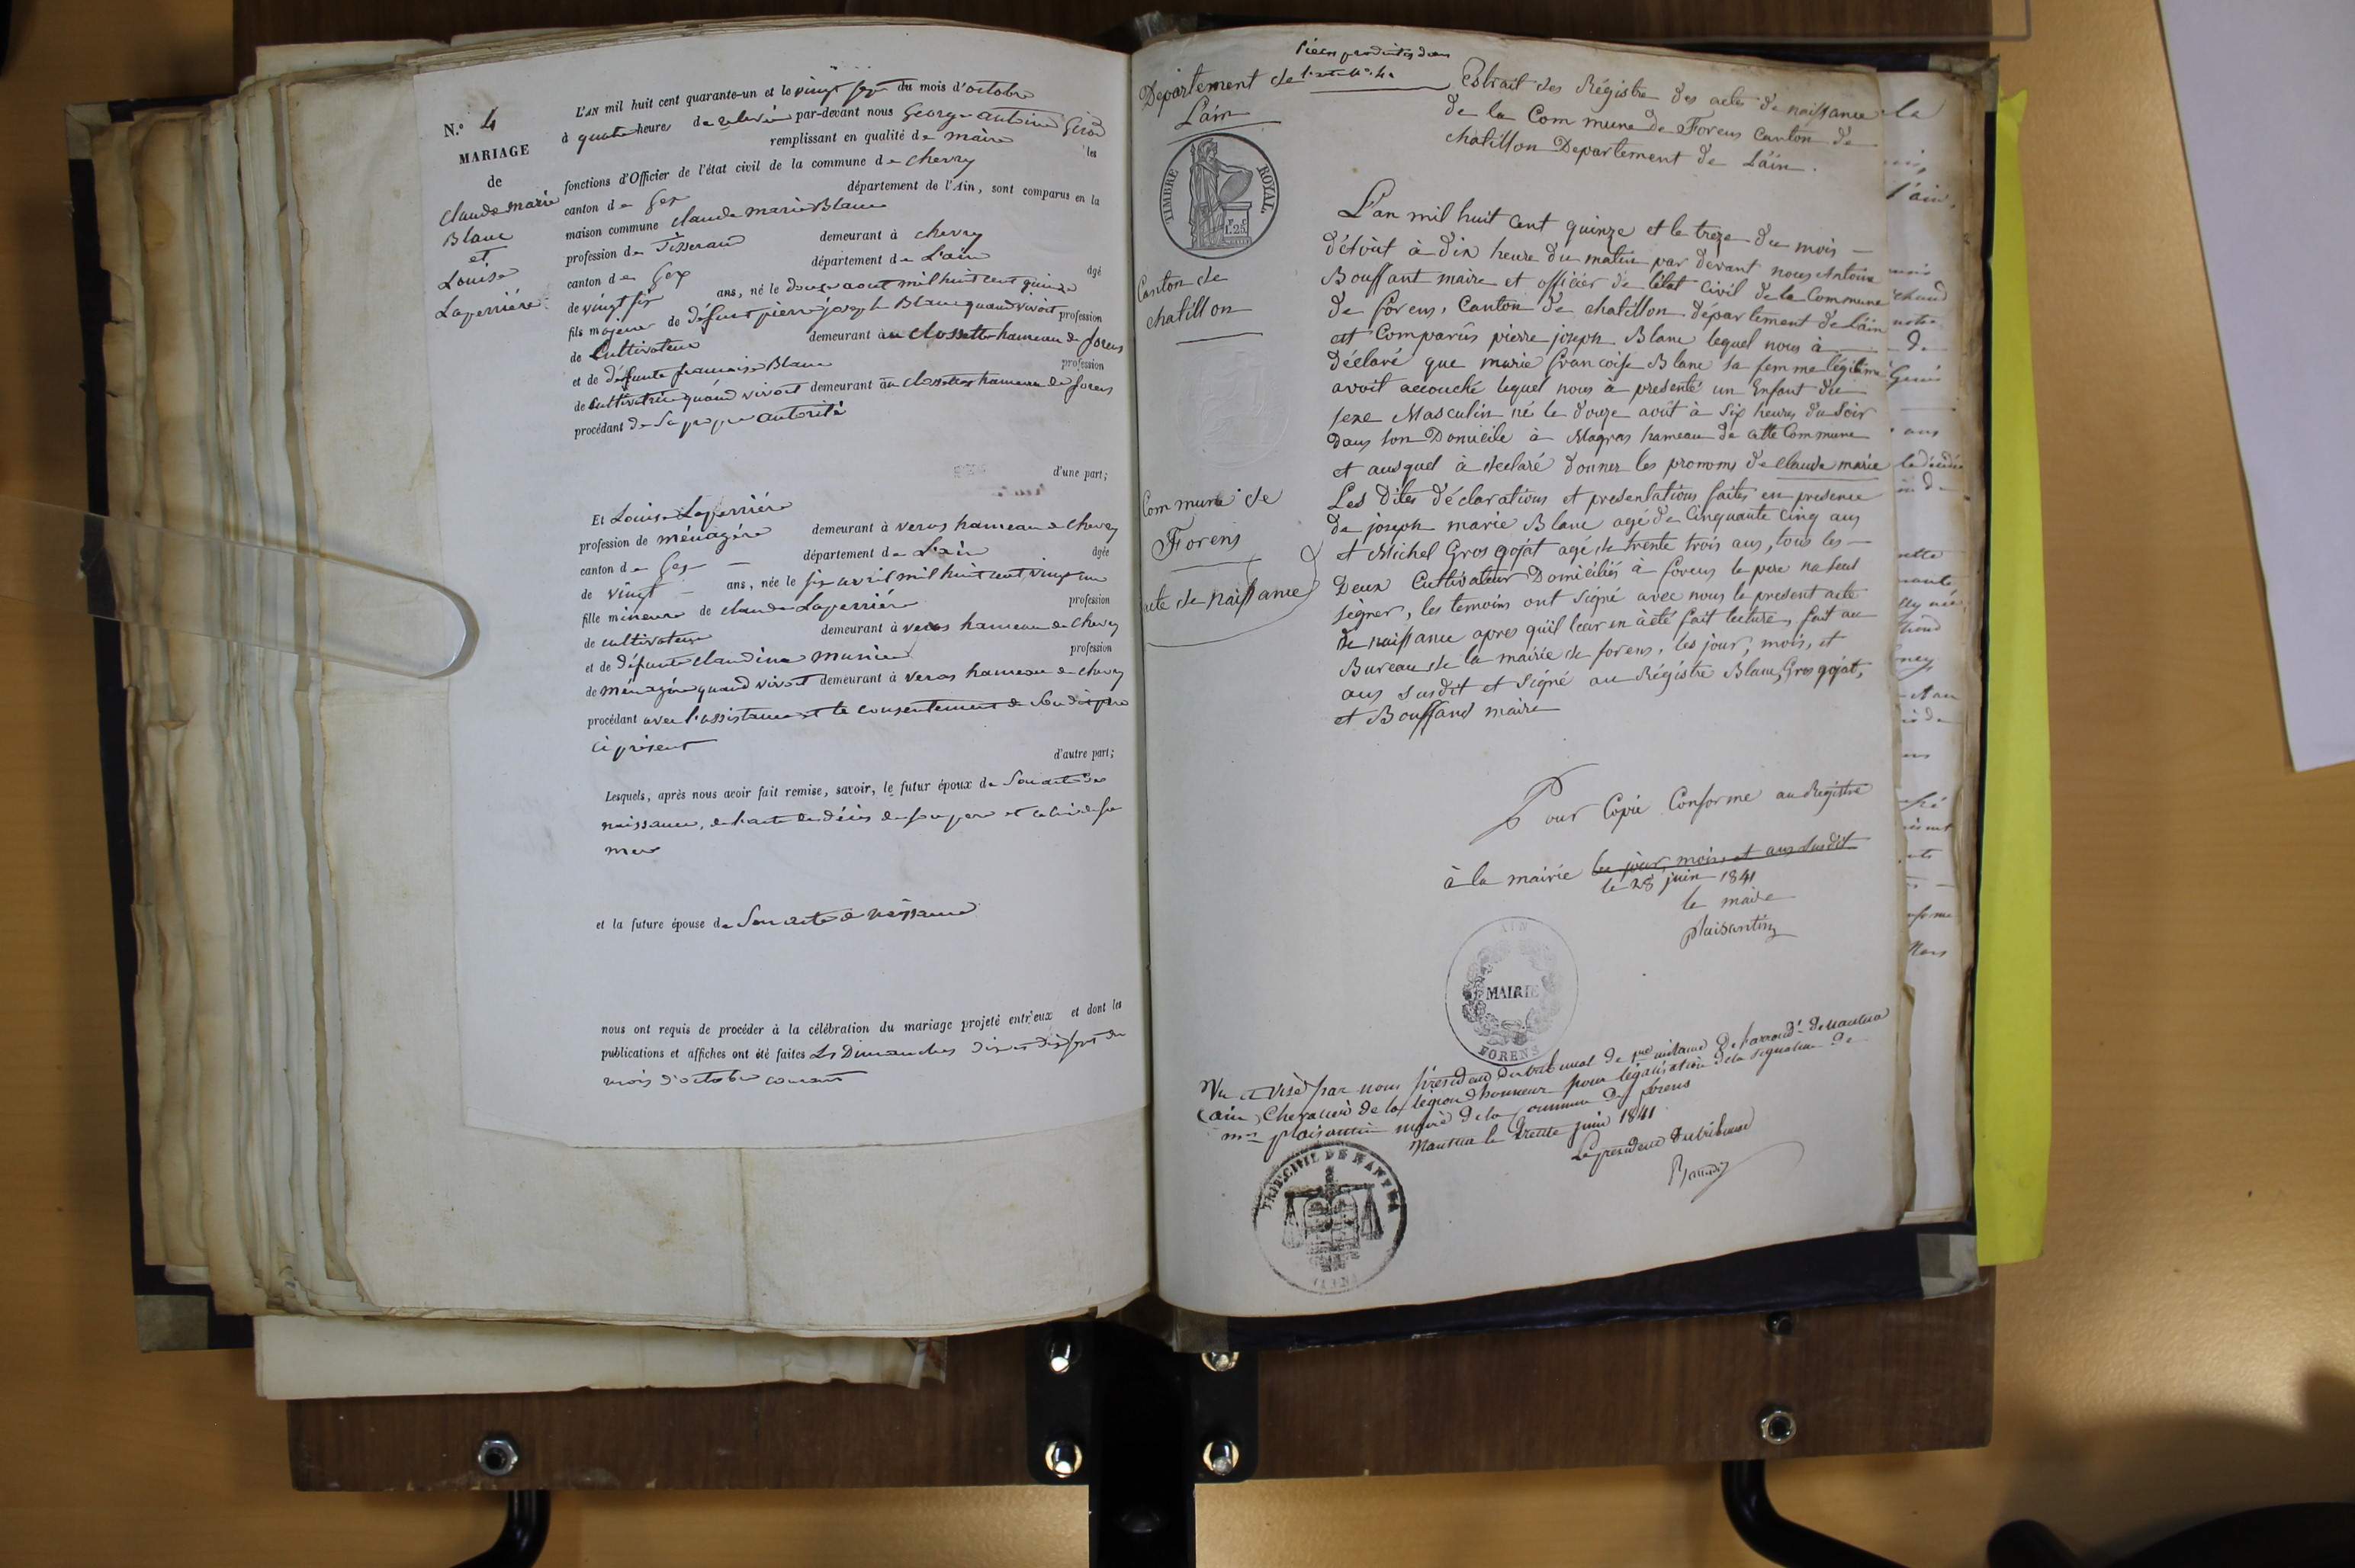 N.° 4
MARIAGE
de
Claude marie
Blanc
et
Louise
Laperrière
L'AN mil huit cent quarante-un et le vingt sept du mois d'octobre
à quatre heures de relevée par-devant nous George antoine Girod
remplissant en qualité de maire les
fonctions d'Officier de l'état civil de la commune de chevry
canton de Gex département de l'Ain, sont comparus en la
maison commune claude marie Blanc
profession de Tisserand demeurant à chevry
canton de Gex département de L'ain âgé
de vingt six ans, né le douze aout mil huit cent quinze
fils majeur de défunt pierre joseph Blanc quand vivoit profession
de Cultivateur demeurant au Clossettes hameau de forens
et de défunte françoise Blanc profession
de Cultivatrice quand vivoit demeurant au Clossettes hameau de forens
procédant de sa propre autorité
d'une part;
Et Louise Laperrière
profession de ménagère demeurant à veras hameau de chevry
canton de Gex département de L'ain âgée
de vingt ans, née le six avril mil huit cent vingt un
fille mineure de claude Laperrière profession
de cultivateur demeurant à veras hameau de chevry
et de défunte claudine munier profession
de ménagère quand vivoit demeurant à veras hameau de chevry
procédant avec l'assistance et le consentement de son dit père
ci présent
d'autre part;
Lesquels, après nous avoir fait remise, savoir, le futur époux de Son acte de
naissance, de l'acte de décès de son père et celui de sa
mère
et la future épouse de Son acte de naissance
nous ont requis de procéder à la célébration du mariage projeté entr'eux et dont les
publications et affiches ont été faites Les Dimanches dix et dix sept du
mois d'octobre courant
Pièces produites dans
l'acte N° 4.
Département de
L'ain
TIMBRE ROYAL
1.25
Canton de
chatillon
Commune de
Forens
acte de naissance
Extrait des Régistre des actes de naissance
de la Commune de Forens Canton de
chatillon Departement de L'ain.
L'an mil huit cent quinze et le treze du mois
d'août à dix heure du matin par devant nous Antoine
Bouffant maire et officier de l'état Civil de la Commune
de forens, Canton de chatillon département de L'ain
est Comparûs pierre joseph Blanc lequel nous à
déclaré que marie francoise Blanc sa femme légitime
avoit accouché lequel nous à presenté un Enfant du
sexe Masculin né le douze août à Six heures du Soir
dans son Domicile à Magras hameau de cette Commune
et auxquel à declaré donner les pronoms de claude marie
Les dites déclarations et presentations faites en presence
de joseph marie Blanc agé de Cinquante Cinq ans
et Michel Gros gojat agé de trente trois ans, tous les
Deux Cultivateur Domiciliés à forens le pere na Seul
signer, les temoins ont signé avec nous le present acte
de naissance apres qu'il leur en à été fait lecture, fait au
Bureau de la mairie de forens, les jour, mois, et
ans susdit et Signé au Régistre Blanc, Gros gojat,
et Bouffand maire
Pour Copie Conforme au Régistre
à la mairie les jour, mois et ans susdit
le 28 juin 1841
le maire
plaisantin
AIN
MAIRIE
FORENS
Vu et visé par nous Président du tribunal de 1re instance de l'arrond.t de Nantua
(ain) Chevalier de la légion d'honneur pour légalisation de la signature de
mr plaisantin maire de la Commune de forens
Nantua le trente juin 1841
Le president du tribunal
TRIB. CIVIL DE NANTUA
(AIN)
la
l'ain.